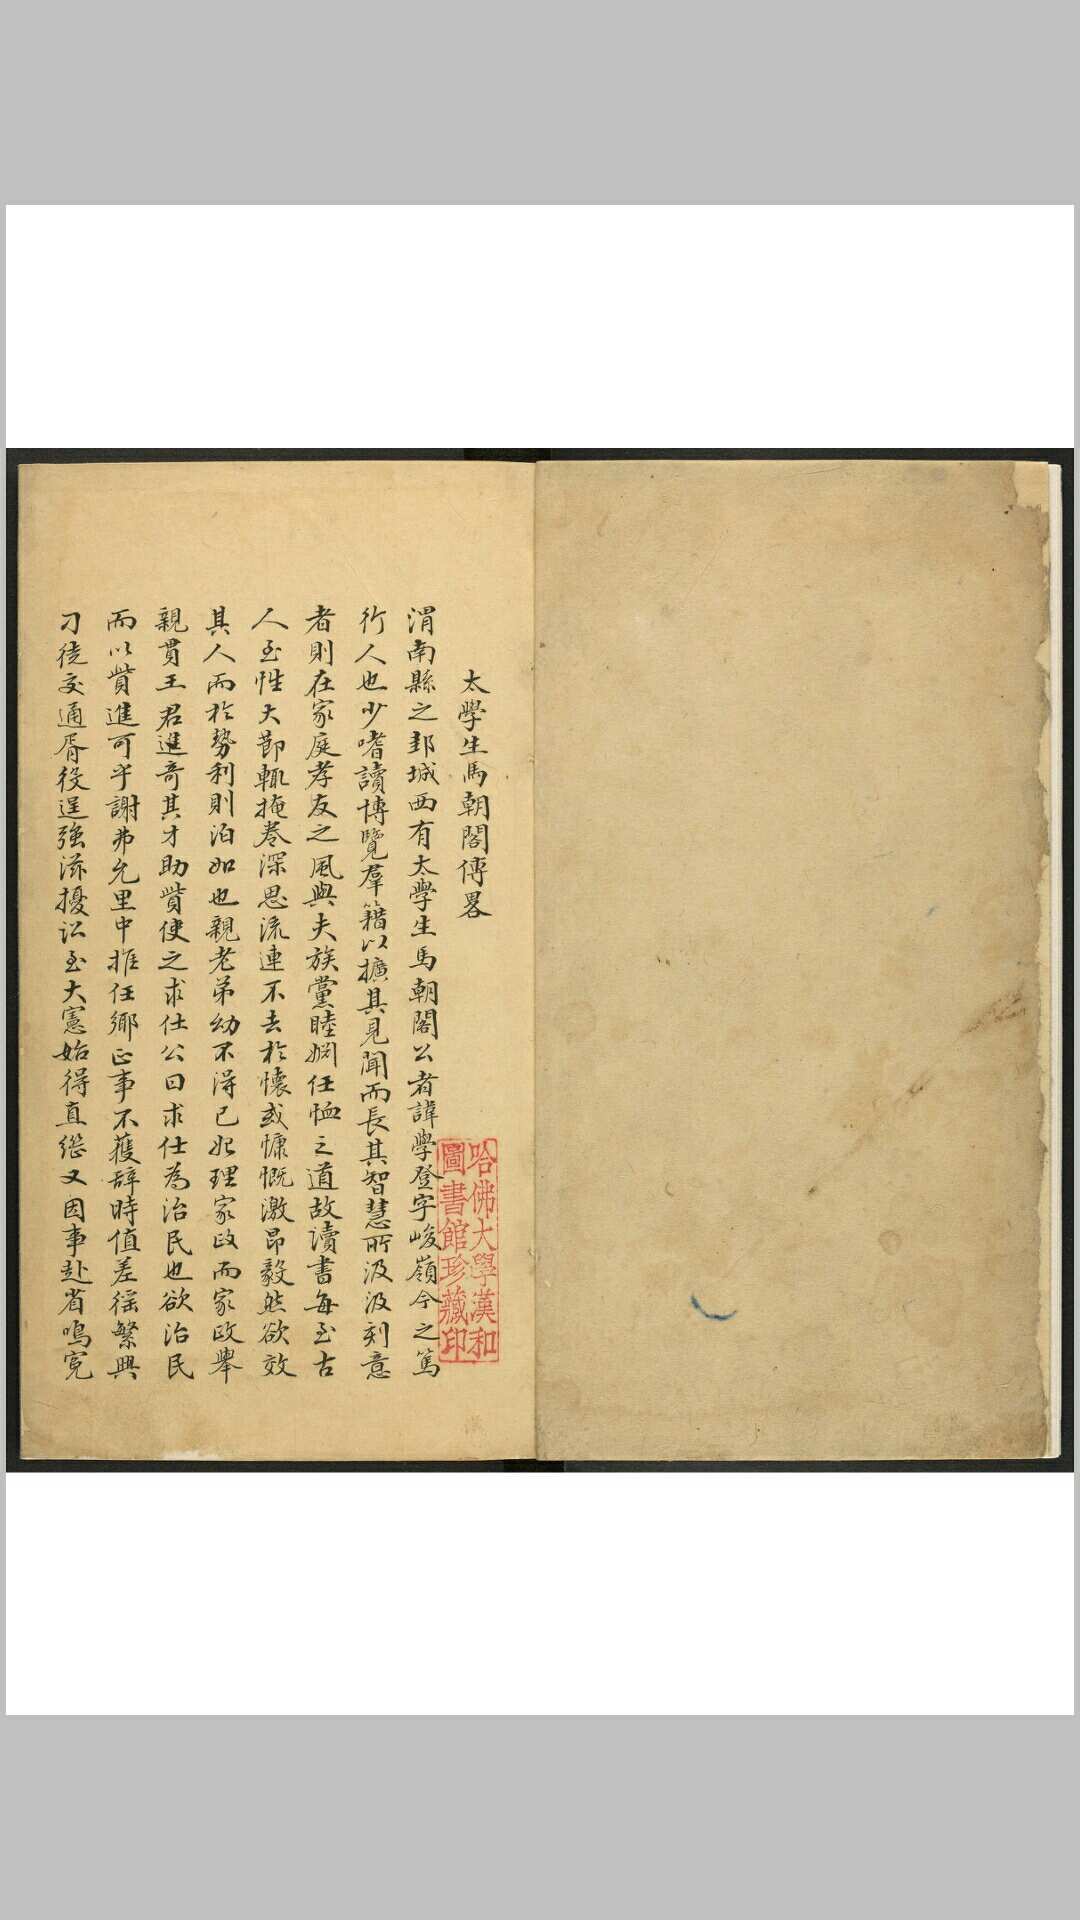 太學生馬朝閣傳畧
渭南縣之邽城西有太學生馬朝閣公者諱學登字峻嶺今之篤
行人也少嗜讀博覽羣籍以擴其見聞而長其智慧所汲汲刻意
者則在家庭孝友之風與夫族黨睦婣任恤之道故讀書每至古
人至性大節輒掩卷深思流連不去於懷或慷慨激昂毅然欲效
其人而於勢利則泊如也親老弟幼不得已始理家政而家政舉
親貫王君進奇其才助貲使之求仕公曰求仕為治民也欲治民
而以貲進可乎謝弗允里中推任鄉正事不獲辭時值差徭繁興
刁徒交通胥役逞強滋擾訟至大憲始得直繼又因事赴省鳴冤
哈佛大學漢和
圖書館珍藏印